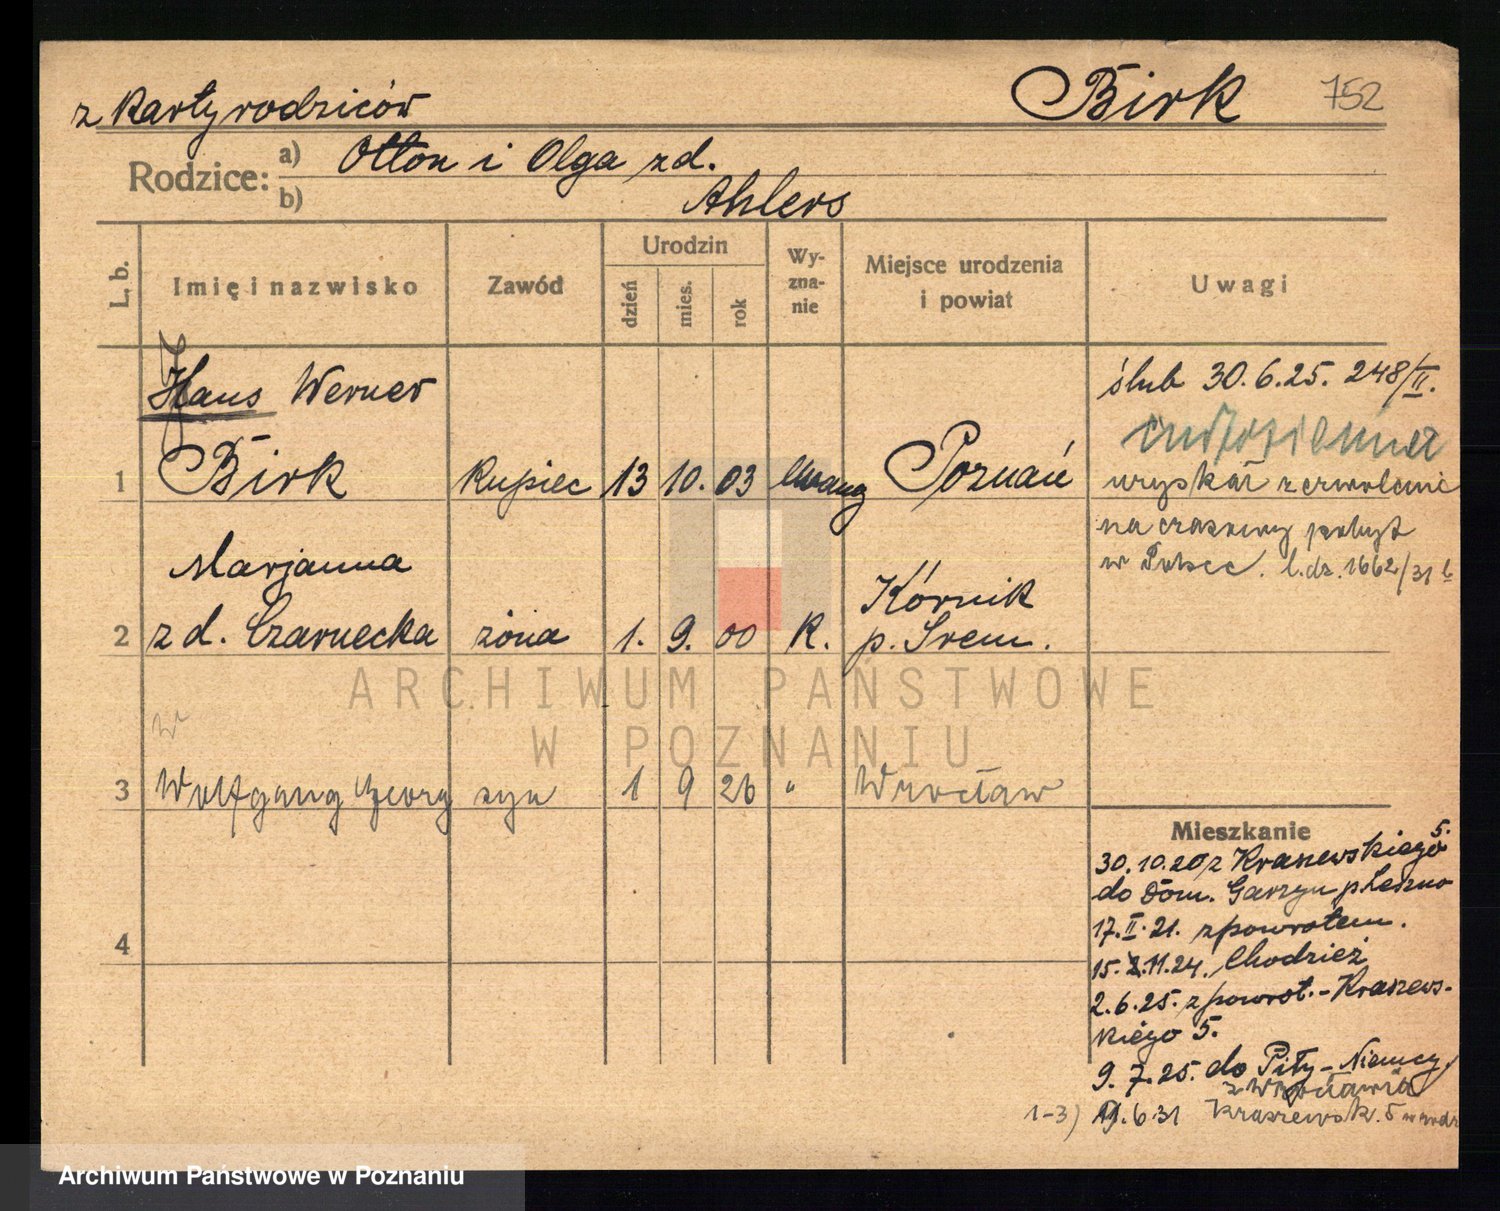 z karty rodziców
Birk
752
Rodzice: a) Otton i Olga zd.
b) Ahlers
L. b.
Imię i nazwisko
Zawód
Urodzin
dzień
mies.
rok
Wy-
zna-
nie
Miejsce urodzenia
i powiat
Uwagi
Hans Werner
1 Birk kupiec 13 10. 03 Ewang Poznań
ślub 30.6.25. 248/II.
cudzoziemiec
uzyskał zezwolenie
na czasowy pobyt
w Polsce. l.dz. 1662/31
Marjanna
2 zd. Czarnecka żona 1. 9. 00 R. Kórnik
p. Śrem.
3 Wolfgang Georg syn 1 9 26 " Wrocław
4
Mieszkanie
30.10.20 z Kraszewskiego 5.
do Dom. Garzyn p Leszno
17.II.21. zpowrotem.
15.11.24. Chodzież
2.6.25. zpowrot. - Kraszews-
kiego 5.
9.7.25. do Piły - Niemcy
z Wrocławia
1-3) 6 31 Kraszewsk. 5
ARCHIWUM PAŃSTWOWE
W POZNANIU
Archiwum Państwowe w Poznaniu